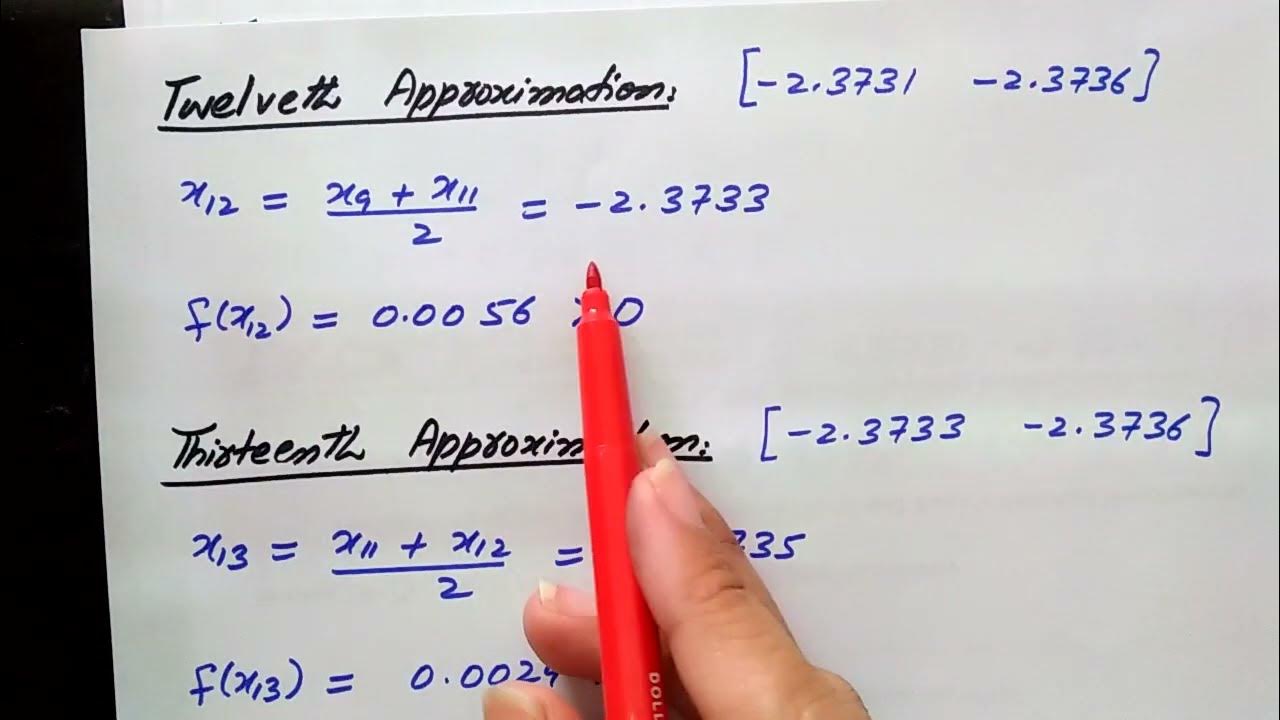 Twelveth Approximation: [-2.3731 -2.3736]
x12 = x9 + x11 / 2 = -2.3733
f(x12) = 0.0056 > 0
Thirteenth Approximation: [-2.3733 -2.3736]
x13 = x11 + x12 / 2 = 335
f(x13) = 0.0024
DOLL